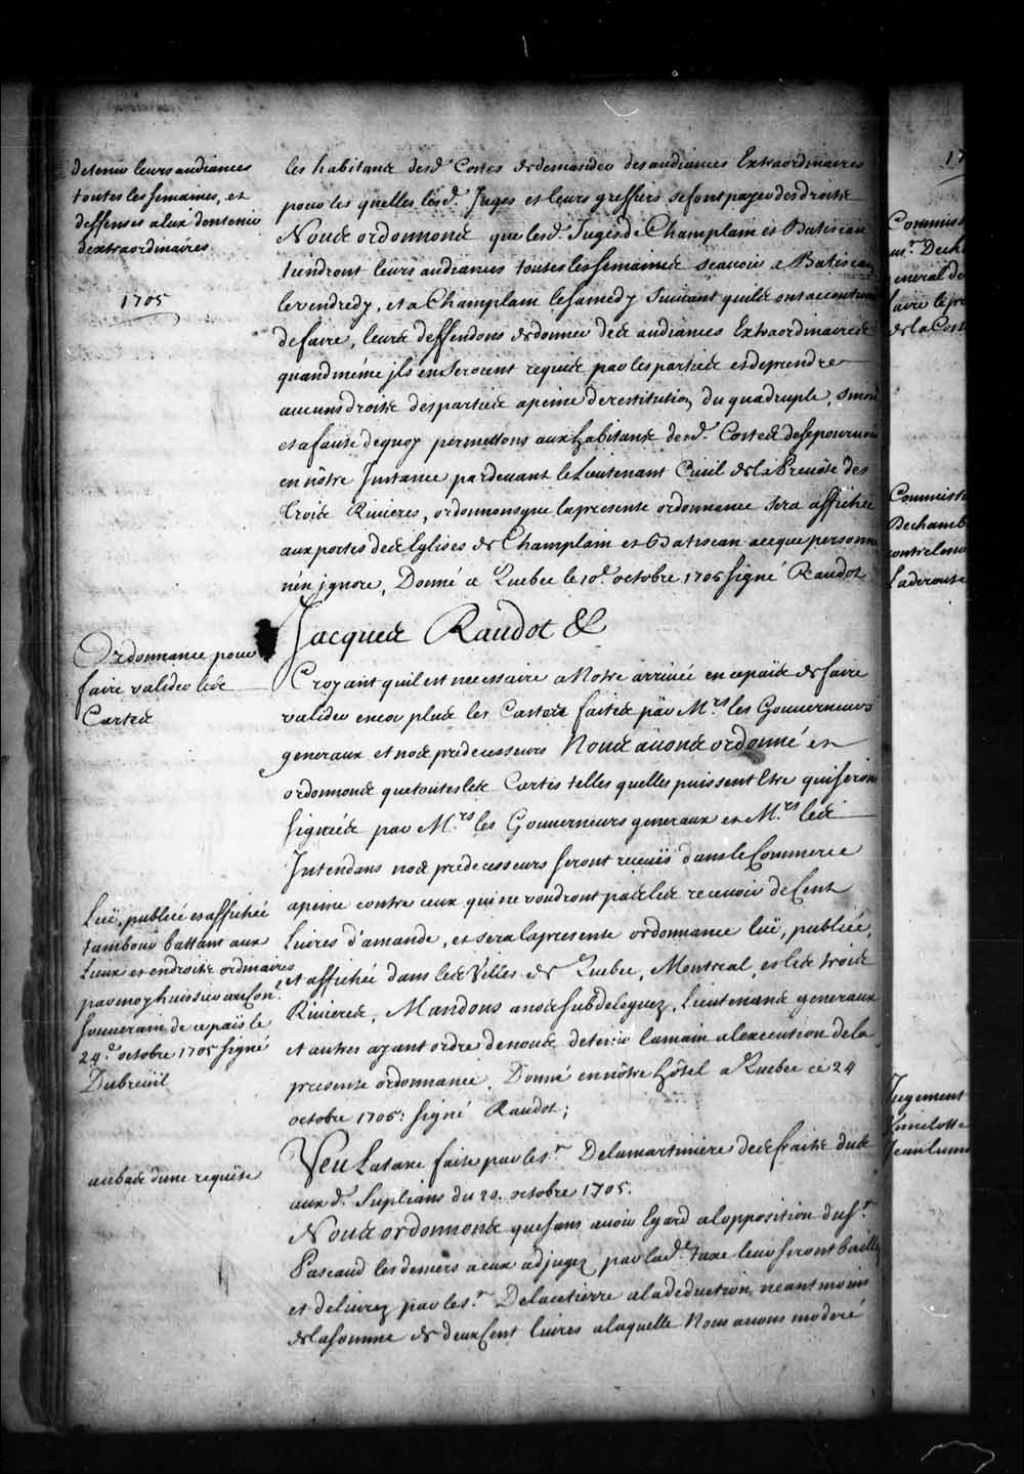 detenir leurs audiances
toutes les semaines, et
deffenses a eux d'en tenir
d'extraordinaires.
1705
les habitans desd. Costes de demander des audiances Extraordinaires
pour les quelles lesd. Juges et leurs greffiers se font payer des droits
Nous ordonnons que lesd. Juges de Champlain et Batiscan
tiendront leurs audiances toutes les semaines scavoir a Batiscan
le vendredy, et a Champlain le samedy suivant qu'ils ont accoutumé
de faire, leurs deffendons de donner des audiances Extraordinaires
quand même ils en seroient requis par les parties et de prendre
aucuns droits des parties a peine de restitution du quadruple, sinon
et a faute de quoy permettons aux habitans desd. Costes de se pourvoir
en nôtre Instance pardevant le Lieutenant Civil de la Prevôté des
trois Rivieres, ordonnons que la presente ordonnance sera affichée
aux portes des Eglises de Champlain et Batiscan ace que personne
n'en ignore, Donné a Quebec le 10e. octobre 1705 signé Raudot
Jacques Raudot &
Ordonnance pour
faire valider les
Cartes
Croyant qu'il est necessaire a Notre arrivée en ce païs de faire
valider encor plus les Cartes faites par M.rs les Gouverneurs
generaux et nos predecesseurs Nous avons ordonné et
ordonnons que toutes les Cartes telles quelles puissent Etre qui seront
signées par M.rs les Gouverneurs generaux et M.rs les
Intendans nos predecesseurs seront receues dans le Commerce
a peine contre ceux qui ne voudront pas les recevoir de Cent
Livres d'amande, et sera la presente ordonnance lüe, publiée,
et affichée dans les Villes de Quebec, Montreal, et les trois
Rivieres, Mandons a nos subdeleguez, Lieutenans generaux
et autres ayant ordre de nous de tenir la main a l'execution de la
presente ordonnance. Donné en nôtre hôtel a Quebec ce 24
octobre 1705: signé Raudot;
Lüe, publiée et affichée
tambour battant aux
Lieux et endroits ordinaires
par moy huissier au Con.l
souverain de ce païs le
24.e octobre 1705 signé
Dubreüil
au bas d'une requête
Veu La taxe faite par le s.r Delamartiniere des fraits dus
aux d. Suplians du 20. octobre 1705.
Nous ordonnons que sans avoir Egard a l'opposition du s.r
Pascaud les deniers a eux adjugez par lad. taxe leur seront baillez
et delivrez par le s.r Delacetierre a la deduction neantmoins
de la somme de deux Cent livres a laquelle Nous avons moderé
17
Commiss
Commiss
Dechamb
contre le
Laderoute
Jugement